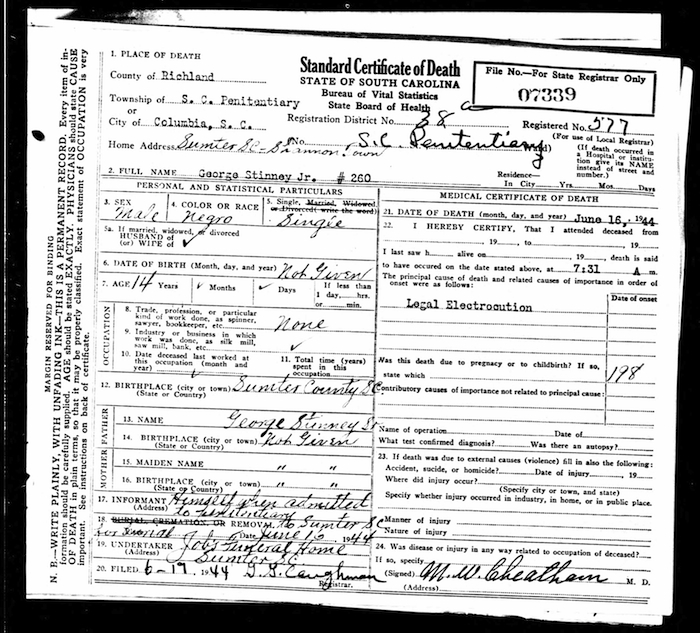 MARGIN RESERVED FOR BINDING
N. B.—WRITE PLAINLY, WITH UNFADING INK—THIS IS A PERMANENT RECORD. Every item of in-
formation should be carefully supplied. AGE should be stated EXACTLY. PHYSICIANS should state CAUSE
OF DEATH in plain terms, so that it may be properly classified. Exact statement of OCCUPATION is very
important. See instructions on back of certificate.
1. PLACE OF DEATH
County of Richland
Township of S. C. Penitentiary
or
City of Columbia, S. C.
Home Address Sumter SC - Town
Standard Certificate of Death
STATE OF SOUTH CAROLINA
Bureau of Vital Statistics
State Board of Health
Registration District No. 38 a
No. S.C. Penitentiary
File No.—For State Registrar Only
07339
Registered No. 577
(For use of Local Registrar)
(If death occurred in
a Hospital or institu-
tion give its NAME
instead of street and
number.)
2. FULL NAME George Stinney Jr. # 260
Residence—
In City Yrs. Mos. Days
PERSONAL AND STATISTICAL PARTICULARS
3. SEX
Male
4. COLOR OR RACE
Negro
5. Single, Married, Widowed
or Divorced (write the word)
Single
5a. If married, widowed, or divorced
HUSBAND of
(or) WIFE of
6. DATE OF BIRTH (Month, day, and year) Not Given
7. AGE 14 Years Months Days If less than
1 day, hrs.
or min.
OCCUPATION
8. Trade, profession, or particular
kind of work done, as spinner,
sawyer, bookkeeper, etc. None
9. Industry or business in which
work was done, as silk mill,
saw mill, bank, etc.
10. Date deceased last worked at
this occupation (month and
year)
11. Total time (years)
spent in this
occupation
12. BIRTHPLACE (city or town) Sumter County S.C.
(State or Country)
FATHER
13. NAME George Stinney Sr
14. BIRTHPLACE (city or town) Not Given
(State or Country)
MOTHER
15. MAIDEN NAME " "
16. BIRTHPLACE (city or town) " "
(State or Country)
17. INFORMANT Himself when admitted
(Address) to penitentiary
18. BURIAL, CREMATION, OR REMOVAL to Sumter SC
for burial Date June 16 1944
19. UNDERTAKER Funeral Home
(Address) Sumter S.C.
20. FILED 6-17 1944 Caughman
Registrar.
MEDICAL CERTIFICATE OF DEATH
21. DATE OF DEATH (month, day, and year) June 16, 1944
22. I HEREBY CERTIFY, That I attended deceased from
, 19 , to , 19
I last saw h alive on 19 , death is said
to have occured on the date stated above, at 7:31 A m.
The principal cause of death and related causes of importance in order of
onset were as follows:
Date of onset
Legal Electrocution
Was this death due to pregnancy or to childbirth? If so,
state which 198
Contributory causes of importance not related to principal cause:
Name of operation Date of
What test confirmed diagnosis? Was there an autopsy?
23. If death was due to external causes (violence) fill in also the following:
Accident, suicide, or homicide? Date of injury , 19
Where did injury occur?
(Specify city or town, and state)
Specify whether injury occurred in industry, in home, or in public place.
Manner of injury
Nature of injury
24. Was disease or injury in any way related to occupation of deceased?
If so, specify
(Signed) M.W. Cheatham M. D.
(Address)